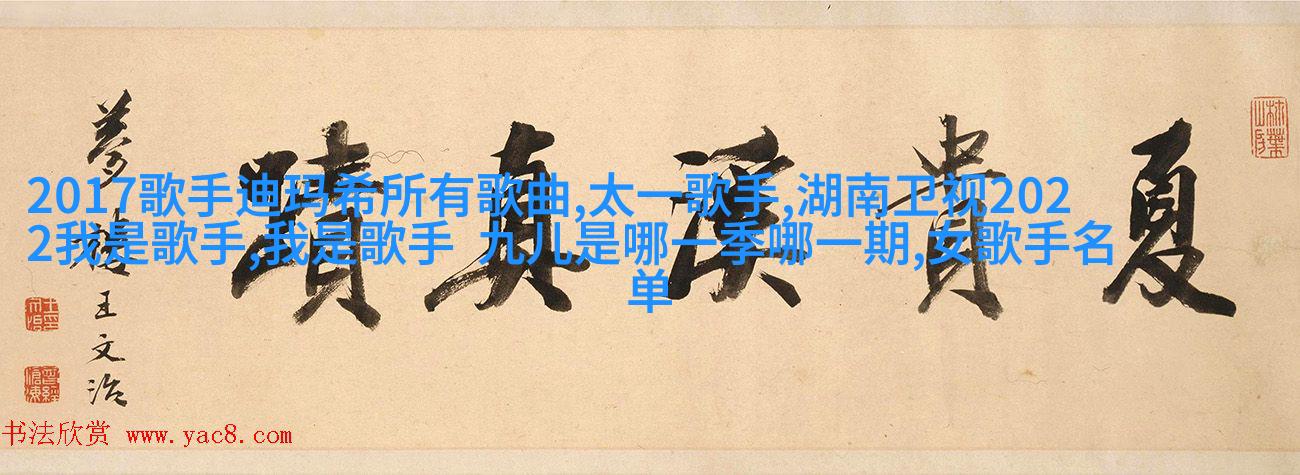 夏貴溪真蹟
夢樓王文治
2017歌手迪玛希所有歌曲,太一歌手,湖南卫视202
2我是歌手,我是歌手 九儿是哪一季哪一期,女歌手名
单
书法欣赏 www.yac8.com